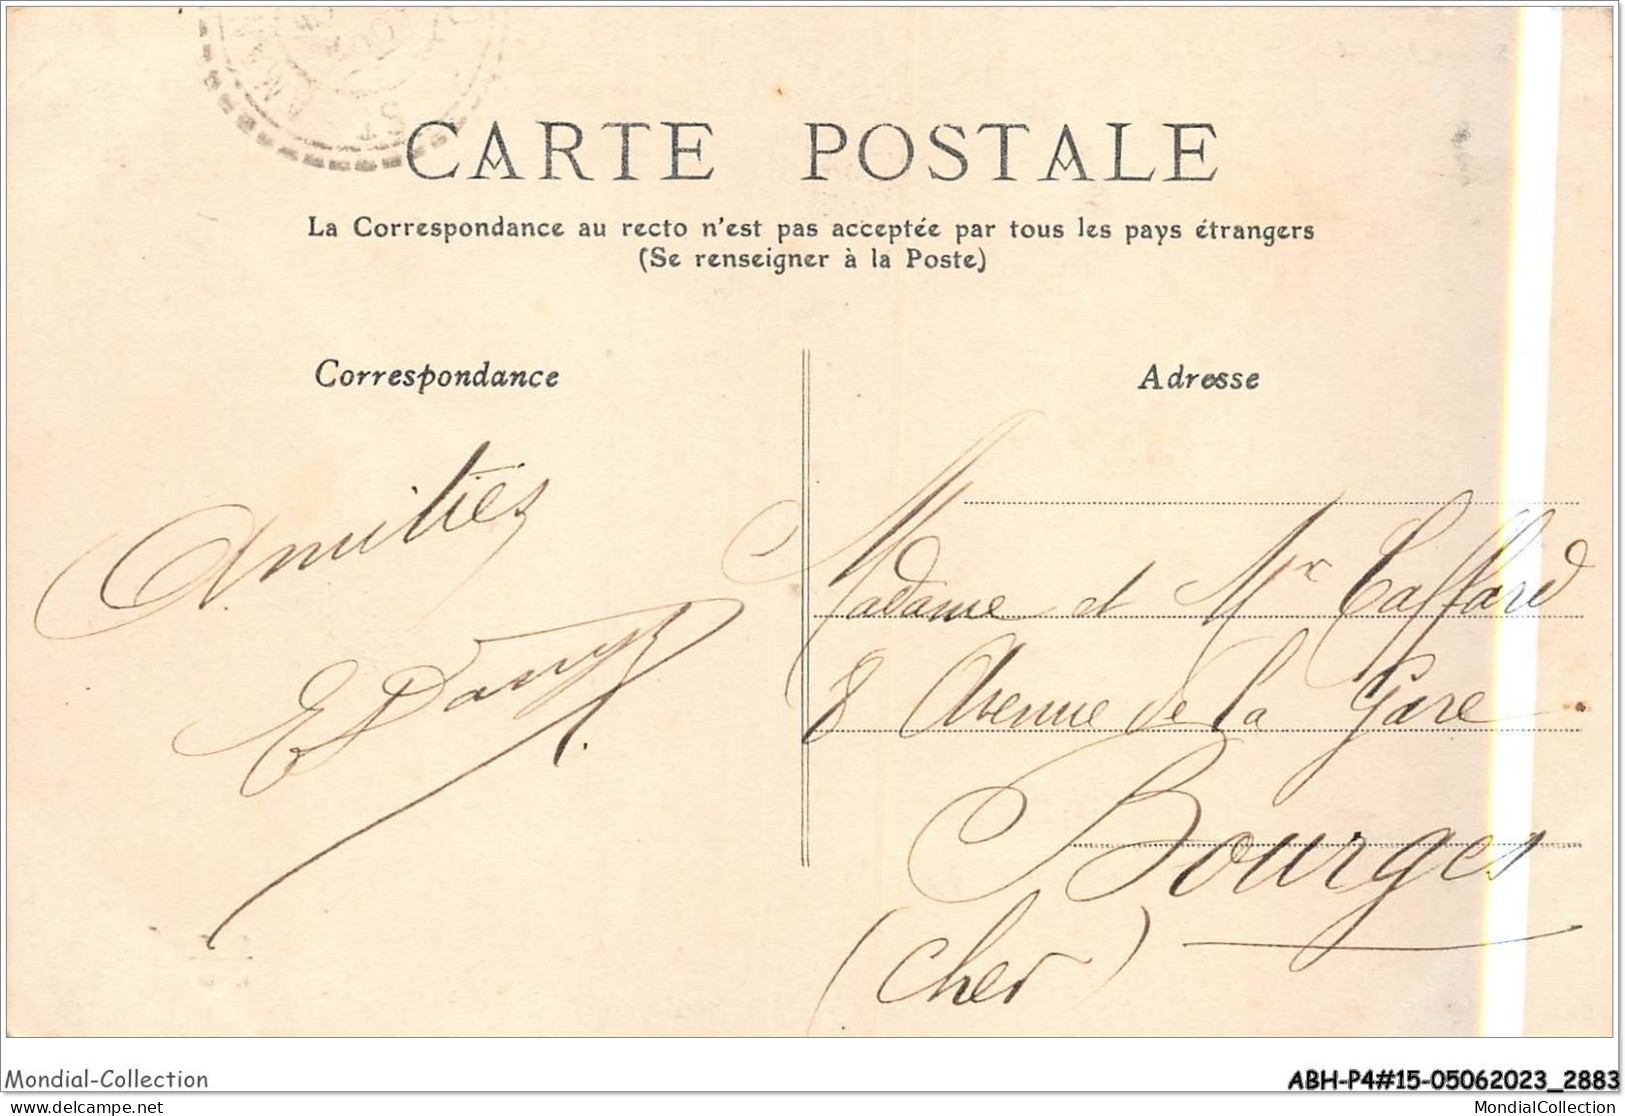 ST AMAN
CARTE POSTALE
La Correspondance au recto n'est pas acceptée par tous les pays étrangers
(Se renseigner à la Poste)
Correspondance
Adresse
Amitiés
E
Madame et Mr Caffard
8 Avenue de la Gare
Bourges
(Cher)
Mondial-Collection
ABH-P4#15-05062023_2883
delcampe.net
MondialCollection